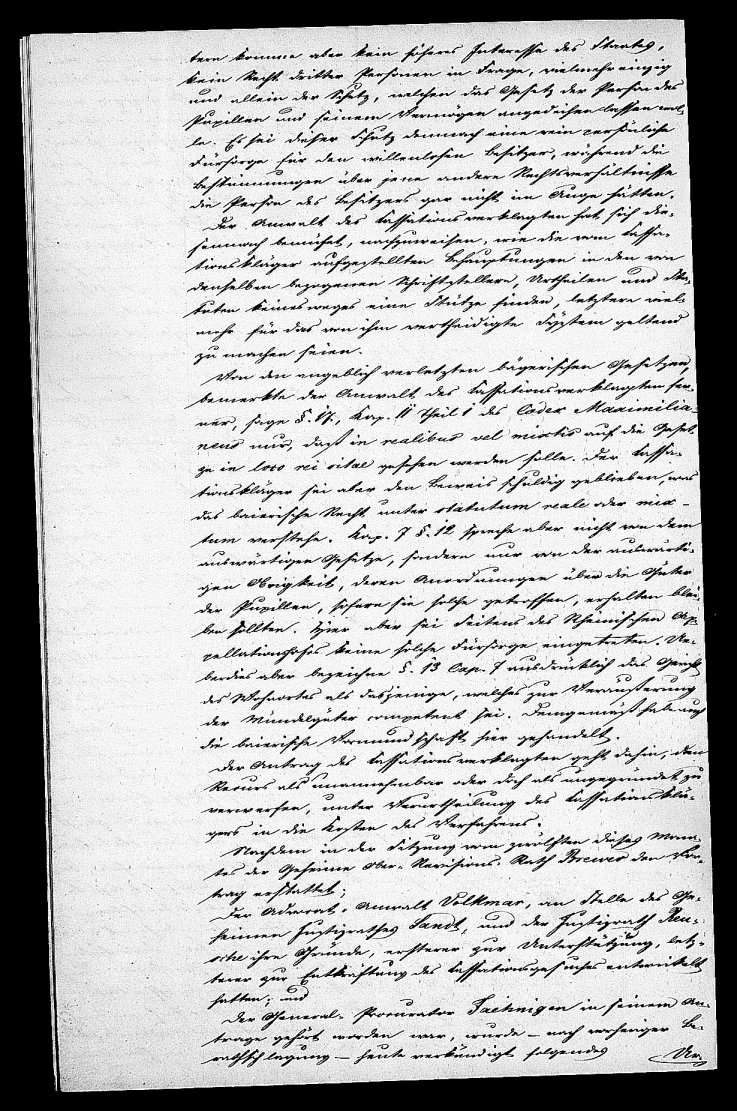 tern komme aber kein höheres Interesse des Staates,
kein Recht dritter Personen in Frage, vielmehr einzig
und allein der Schutz, welchen das Gesetz der Person des
Pupillen und seinem Vermögen angedeihen lassen wol-
le. Es sei dieser Schutz demnach eine rein persönliche
Fürsorge für den willenlosen Besitzer, während die
Bestimmungen über jene andere Rechtsverhältnisse
die Person des Besitzers gar nicht im Auge hätten.
Der Anwalt des Cassationsverklagten hat sich die-
semnach bemühet, nachzuweisen, wie die vom Cassa-
tionskläger aufgestellten Behauptungen in den von
denselben bezogenen Schriftstellern, Urtheilen und Sta-
tuten keineswegs eine Stütze finden, letztere viel-
mehr für das von ihm vertheidigte System geltend
zu machen seien.
Von den angeblich verletzten bayerischen Gesetzen,
bemerkte der Anwalt des Cassationsverklagten fer-
ner, sage §. 17, Kap. II Theil 1 des Codex Maximilia-
neus nur, daß in realibus vel mixtis auf die Geset-
ze in loco rei sitae gesehen werden solle. Der Cassa-
tionskläger sei aber den Beweis schuldig geblieben, was
das baierische Recht unter statutum reale oder mix-
tum verstehe. Kap. 7 §. 12 spreche aber nicht von dem
auswärtigen Gesetze, sondern nur von der auswärti-
gen Obrigkeit, deren Anordnungen über die Güter
der Pupillen, sofern sie solche getroffen, erhalten blei-
ben sollten. Hier aber sei Seitens des Rheinischen Ap-
pellationshofes keine solche Fürsorge eingetreten. Ue-
berdies aber bezeichne §. 13 Cap. 7 ausdrücklich das Gericht
des Wohnortes als dasjenige, welches zur Veräußerung
der Mündelgüter competent sei. Demgemäß habe auch
die baierische Vormundschaft hier gehandelt.
Der Antrag des Cassationsverklagten geht dahin, den
Recurs als unannehmbar oder doch als ungegründet zu
verwerfen, unter Verurtheilung des Cassationsklä-
gers in die Kosten des Verfahrens.
Nachdem in der Sitzung vom zwölften dieses Mona-
tes der Geheime Ober-Revisions-Rath Brewer den Vor-
trag erstattet;
Der Advocat-Anwalt Volkmar, an Stelle des Ge-
heimen Justizrathes Sandt, und der Justizrath Reu-
sche ihre Gründe, ersterer zur Unterstützung, letz-
terer zur Entkräftung des Cassationsgesuches entwickelt
hatten; und
der General-Procurator Jaehnigen in seinem An-
trage gehört worden war, wurde – nach vorheriger Be-
rathschlagung – heute verkündigt folgendes
Ur-